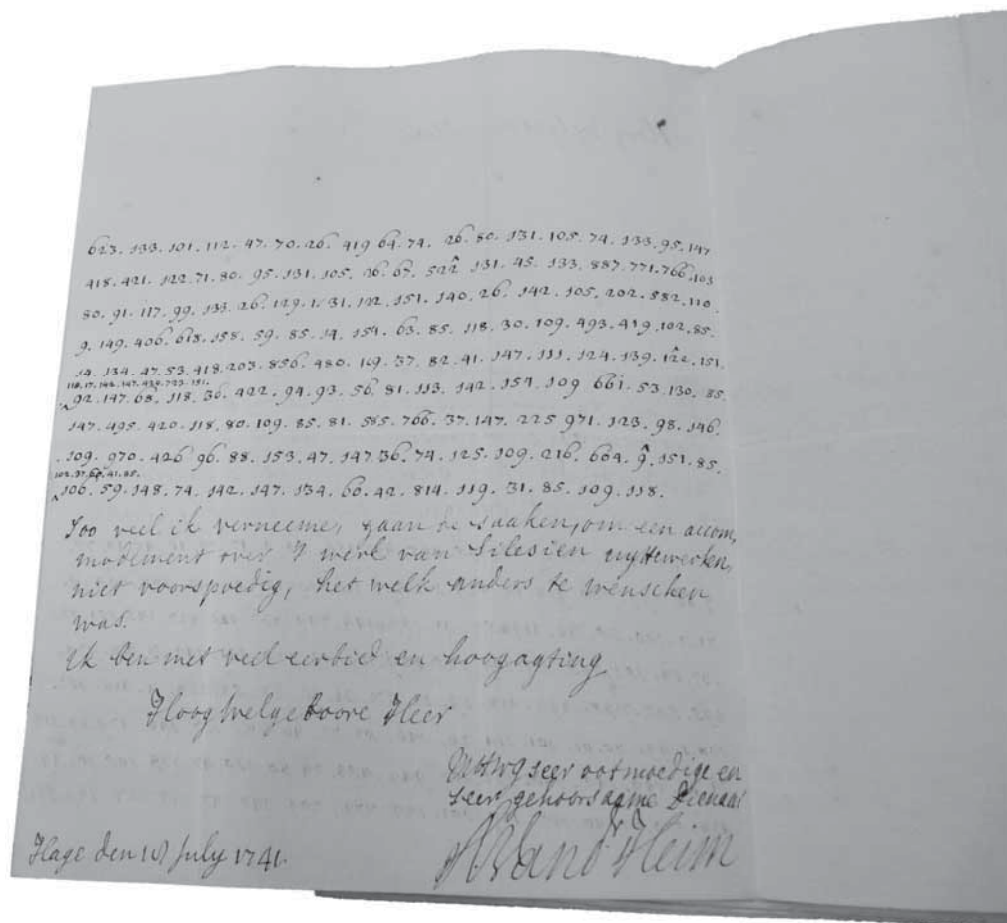 623. 133. 101. 112. 47. 70. 26. 419 64. 74. 26. 80. 131. 105. 74. 133. 95. 147
418. 421. 122. 71. 80. 95. 131. 105. 26. 67. 522 131. 45. 133. 887. 771. 766. 103
80. 91. 117. 99. 133. 26. 129. 1. 31. 112. 151. 140. 26. 142. 105. 202. 582. 110
9. 149. 406. 618. 158. 59. 85. 14. 154. 63. 85. 118. 30. 109. 493. 419. 102. 85.
14. 134. 47. 53. 418. 203. 856. 480. 169. 37. 82. 41. 147. 111. 124. 139. 122. 151.
92. 147. 68. 118. 36. 422. 94. 93. 56. 81. 113. 142. 154. 109 661. 53. 130. 85.
147. 495. 420. 118. 80. 109. 85. 81. 585. 766. 37. 147. 225 971. 123. 98. 146.
109. 970. 426 96. 88. 153. 47. 147. 36. 74. 125. 109. 216. 664. 9. 151. 85.
102. 37. 60. 41. 85.
106. 59. 148. 74. 142. 147. 134. 60. 42. 814. 119. 31. 85. 109. 118.
Soo veel ik verneeme, gaan de saaken, om een accom,
modement over 't werk van Silesien uyttewerken,
niet voorspoedig, het welk anders te wenschen
was.
Ik ben met veel eerbied en hoogagting
Hoog Welgeboore Heer
UHWg seer ootmoedige en
seer gehoorsaame Dienaar
AVand'Heim
Hage den July 1741.